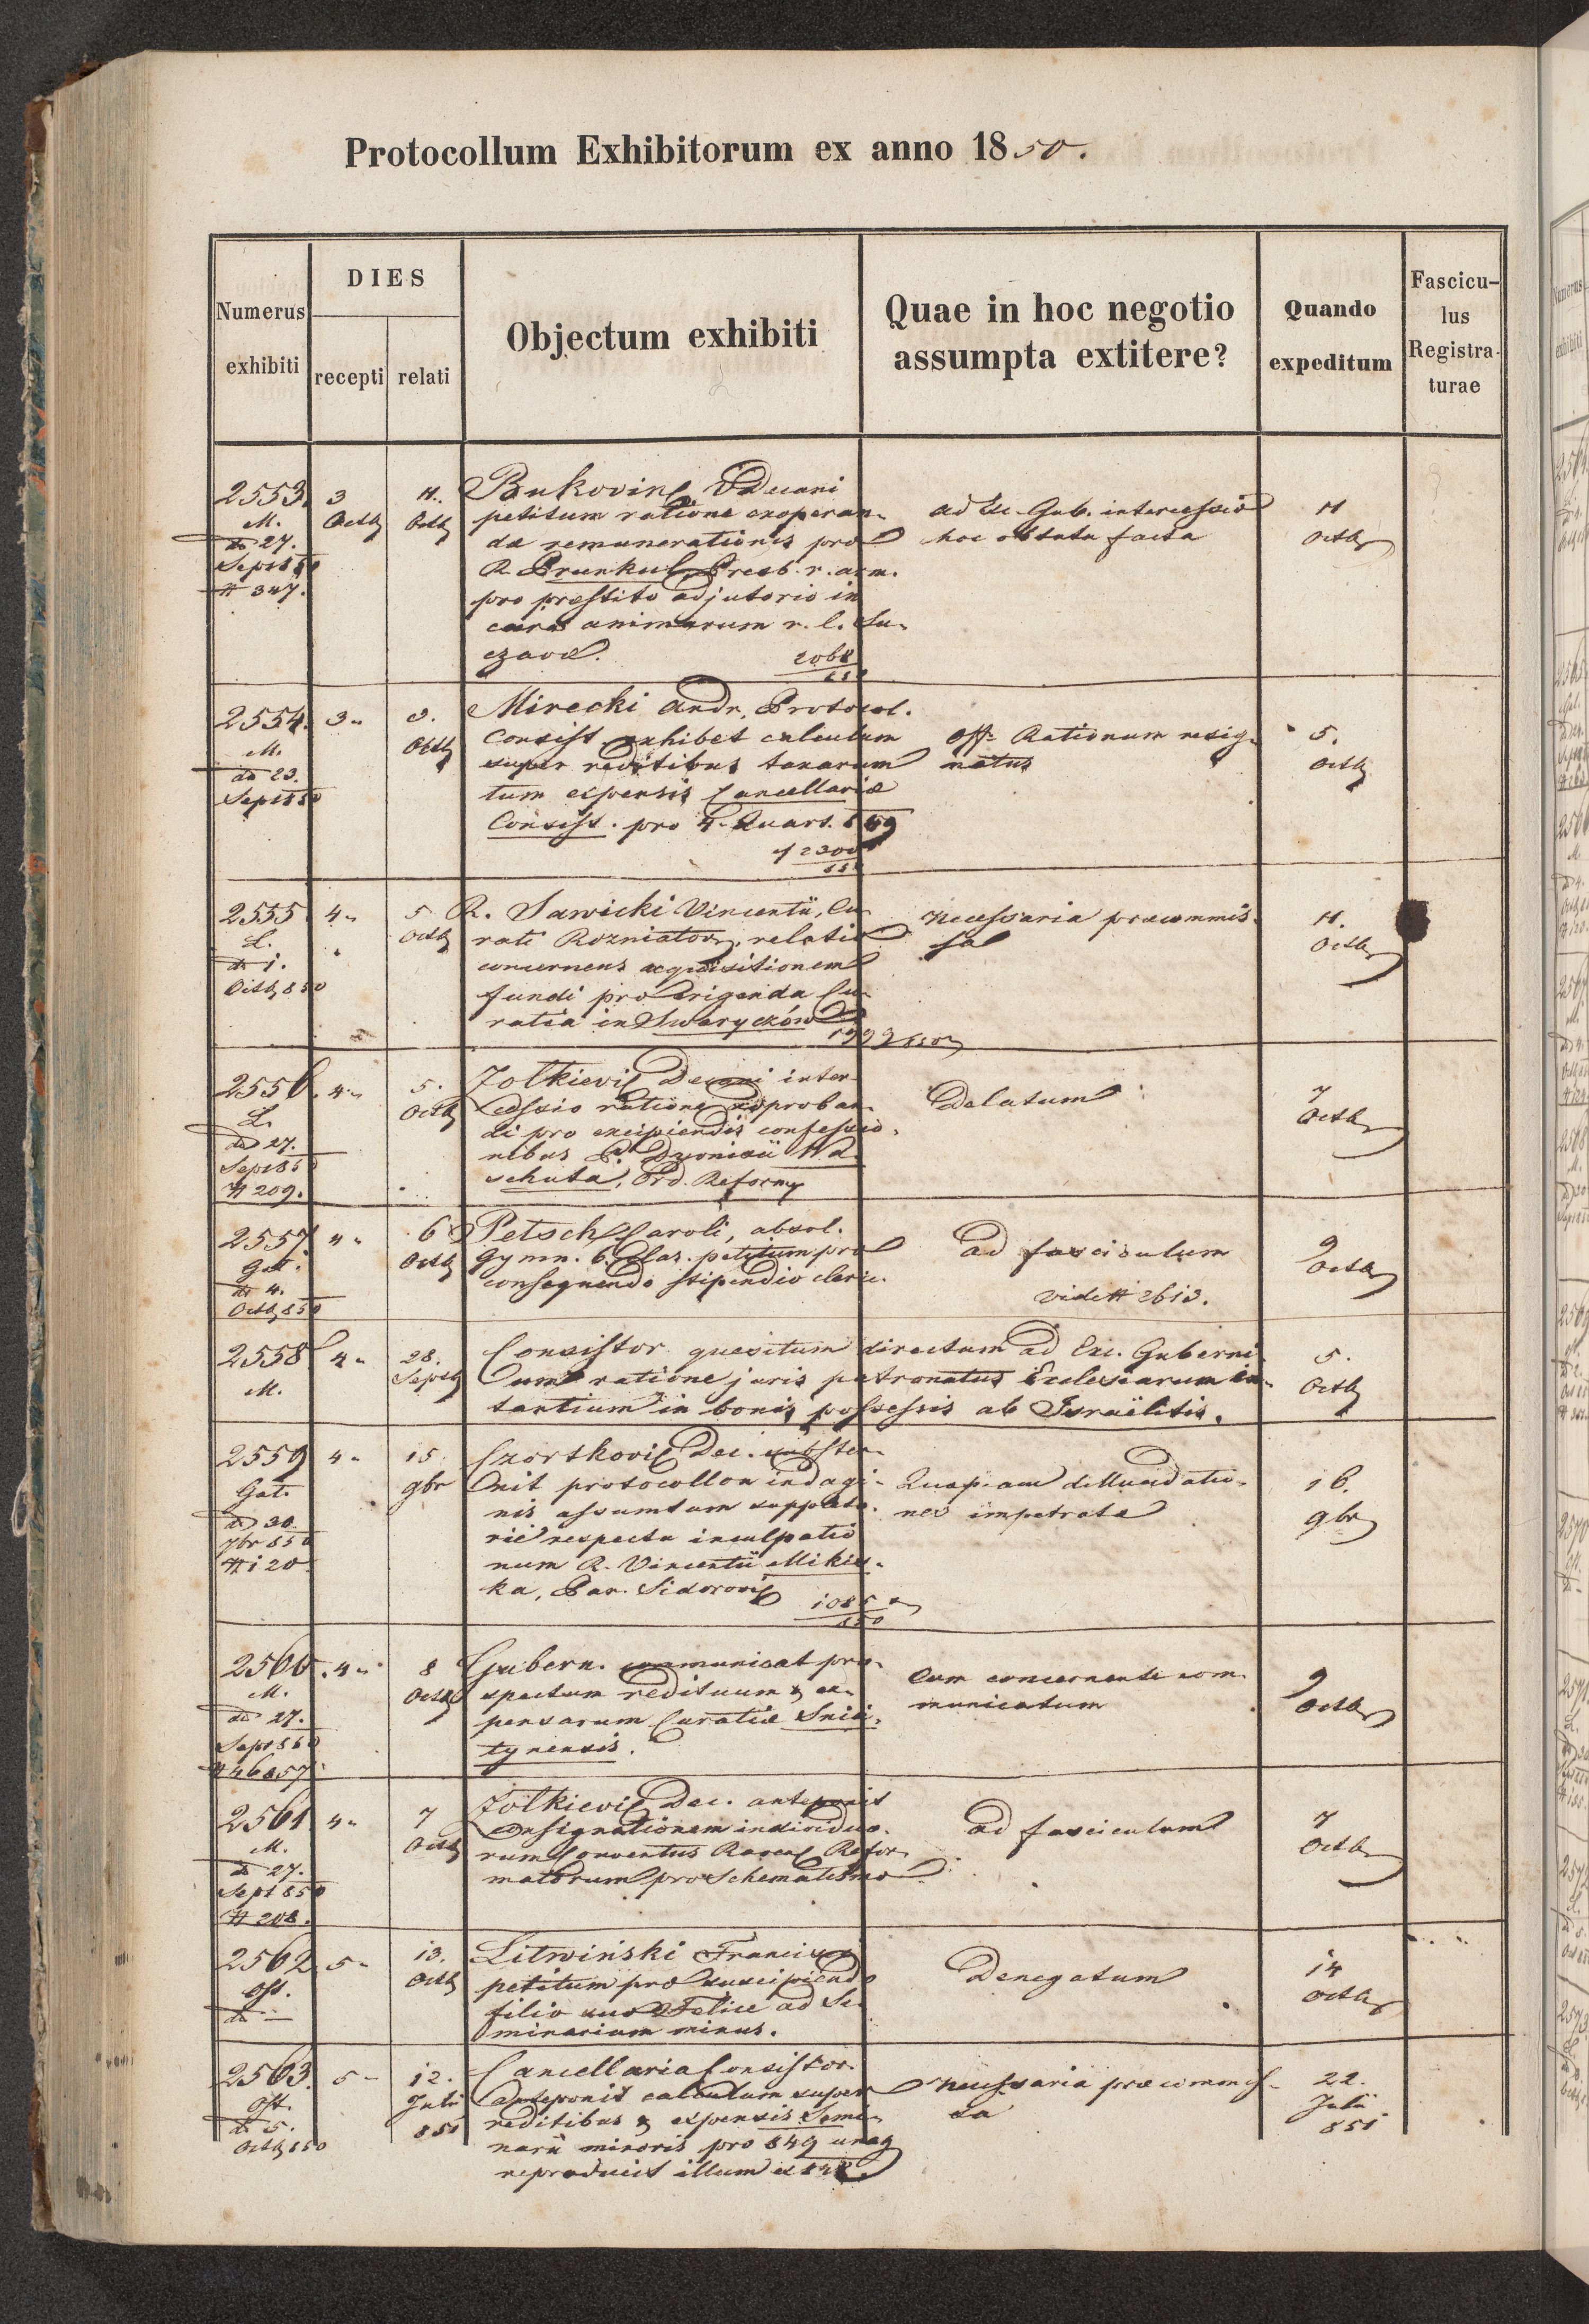 Protocollum Exhibitorum ex anno 1850.
Numerus exhibiti
DIES
recepti
relati
Objectum exhibiti
Quae in hoc negotio assumpta extitere?
Quando expeditum
Fascicu-
lus
Registra-
turae
2553.
M.
dd 27.
Sept 850
# 347.
3
Octb
11.
Octb
Bukovin Decani
petitum ratione exoperan-
dae remunerationis pro
R. Prunkul, Presb. r. arm.
pro præstito adjutorio in
cura animarum r. l. Su-
czavæ.
2068
850
ad Exc. Gub. intercessio
hoc obtutu facta
11
Octb
2554.
M.
dd 23.
Sept 850
3"
3.
Octb
Mirecki Andr. Protocol.
Consist. exhibet calculum
super reditibus taxarum
tum expensis Cancellariæ
Consist. pro 4. Quart. 849
2300
850
Off. Rationum resig-
natus
5.
Octb
2555
L.
dd 1.
Octb 850
4"
5
Octb
R. Sawicki Vincentii, Cu-
rati Rozniatov, relatio
concernens acquisitionem
fundi pro erigenda Cu-
ratia in Swaryczów
1993 850
Necessaria præcommis-
sa
11.
Octb
2556.
L.
dd 27.
Sept 850
# 209.
4"
5.
Octb
Żołkievi Decani inter-
cessio ratione approban-
di pro excipiendis confessio-
nibus P. Dyonisii Wa-
schuta, Ord. Reform
Delatum
7
Octb
2557.
Gat.
dd 4.
Octb 850
4"
6
Octb
Petsch Caroli, absol.
Gymn. 6. Clas. petitum pro
consequendo stipendio cleric.
ad fasciculum
vide # 2613.
9
Octb
2558
M.
4"
28.
Septb
Consistor. quesitum directum ad Exc. Guberni-
um ratione juris patronatus Ecclesiarum ex-
tantium in bonis possessis ab Israëlitis.
5.
Octb
2559
Gat.
dd 30.
7br 850
# 120
4"
15
9br
Czortkovi Dec. subster-
nit protocollon indagi-
nis assumtum suppleto-
rie respectu inculpatio
num R. Vincentii Mikie-
ka, Par. Sidorovi
1085
850
Quapiam dilluidatio-
nes impetratæ
16.
9br
2560.
M.
dd 27.
Sept 850
# 46857
4"
8
Octb
Gubern. communicat pro-
spectum redituum & ex-
pensarum Curatiæ Snia-
tynensis.
Cum concernente com-
municatum
9
Octb
2561
M.
dd 27.
Sept 850
# 208.
4"
7
Octb
Żołkievi Dec. anteponit
consignationem individuo-
rum Conventus Raven Refor-
matorum pro Schematismo
ad fasciculum
7
Octb
2562
Off.
dd —
5"
13.
Octb
Litwiński Francisci
petitum pro suscipiendo
filio suo Felice ad Se-
minarium minus.
Denegatum
14
Octb
2563.
Off.
dd 5.
Octb 850
5"
12.
Julii
851
Cancellaria Consistor.
anteponit calculum super
reditibus & expensis Semi-
narii minoris pro 849 unaq
reproducit illum ex 848.
Necessaria præcommis-
sa
22.
Julii
851